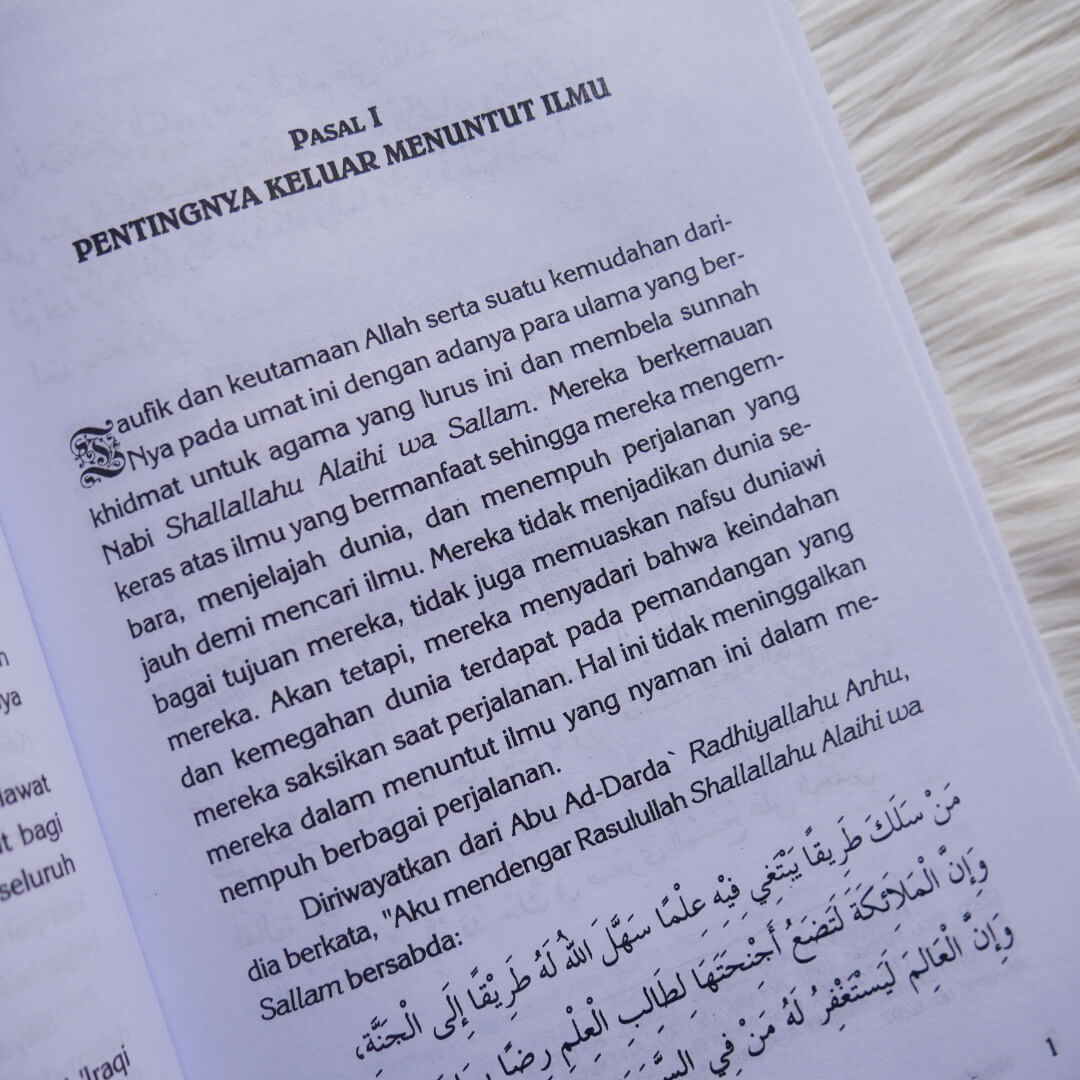 PASAL I
PENTINGNYA KELUAR MENUNTUT ILMU
Taufik dan keutamaan Allah serta suatu kemudahan dari-
Nya pada umat ini dengan adanya para ulama yang ber-
khidmat untuk agama yang lurus ini dan membela sunnah
Nabi Shallallahu Alaihi wa Sallam. Mereka berkemauan
keras atas ilmu yang bermanfaat sehingga mereka mengem-
bara, menjelajah dunia, dan menempuh perjalanan yang
jauh demi mencari ilmu. Mereka tidak menjadikan dunia se-
bagai tujuan mereka, tidak juga memuaskan nafsu duniawi
mereka. Akan tetapi, mereka menyadari bahwa keindahan
dan kemegahan dunia terdapat pada pemandangan yang
mereka saksikan saat perjalanan. Hal ini tidak meninggalkan
mereka dalam menuntut ilmu yang nyaman ini dalam me-
nempuh berbagai perjalanan.
Diriwayatkan dari Abu Ad-Darda` Radhiyallahu Anhu,
dia berkata, "Aku mendengar Rasulullah Shallallahu Alaihi wa
Sallam bersabda:
مَنْ سَلَكَ طَرِيقًا يَبْتَغِي فِيْهِ عِلْمًا سَهَّلَ اللَّهُ لَهُ طَرِيْقًا إِلَى الْجَنَّةِ،
وَإِنَّ الْمَلاَئِكَةَ لَتَضَعُ أَجْنِحَتَهَا لِطَالِبِ الْعِلْمِ رِضًا
وَإِنَّ الْعَالِمَ لَيَسْتَغْفِرُ لَهُ مَنْ فِي
1
bagi
seluruh
'Iraqi